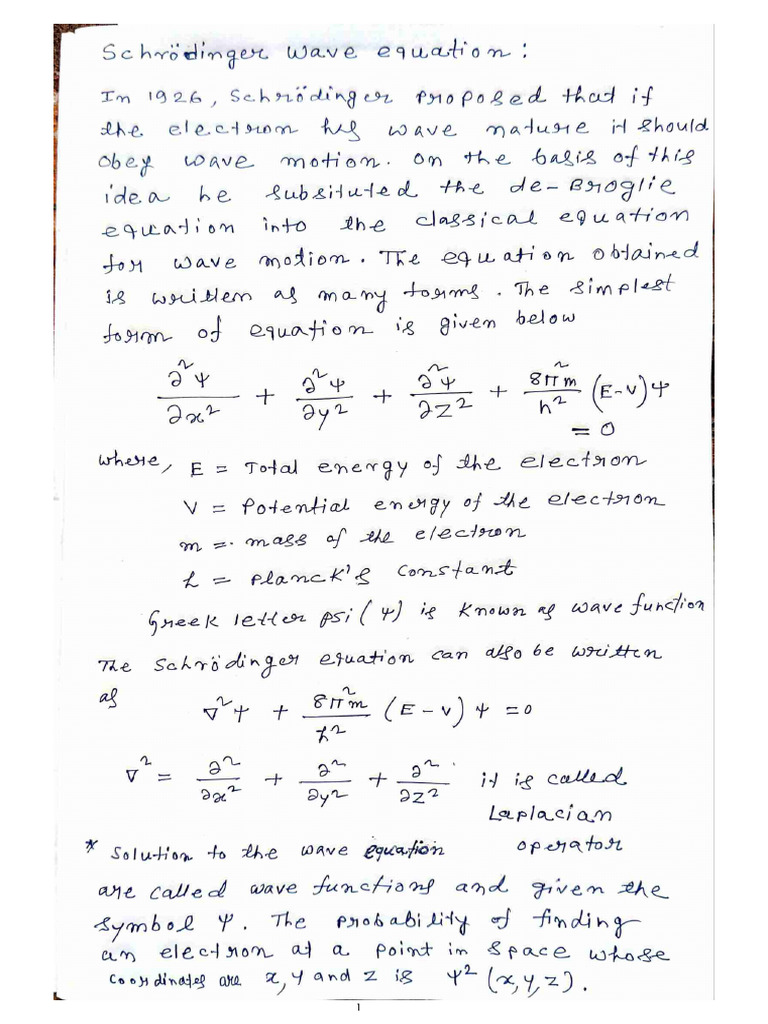 Schrödinger wave equation:
In 1926, Schrödinger proposed that if
the electron has wave nature it should
obey wave motion. On the basis of this
idea he subsituted the de-Broglie
equation into the classical equation
for wave motion. The equation obtained
is written as many forms. The simplest
form of equation is given below
∂²Ψ/∂x² + ∂²Ψ/∂y² + ∂²Ψ/∂z² + 8π²m/h² (E-V)Ψ
= 0
where, E = Total energy of the electron
V = Potential energy of the electron
m = mass of the electron
h = planck's constant
Greek letter psi (Ψ) is known as wave function
The Schrödinger equation can also be written
as ∇²Ψ + 8π²m/h² (E-V) Ψ = 0
∇² = ∂²/∂x² + ∂²/∂y² + ∂²/∂z² it is called
Laplacian
operator
* Solution to the wave equation
are called wave functions and given the
symbol Ψ. The probability of finding
an electron at a point in space whose
coordinates are x, y and z is Ψ² (x,y,z).
1